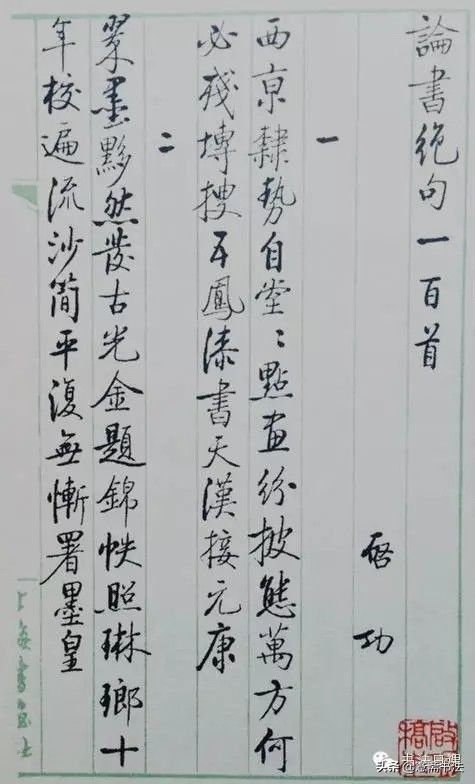 論書絕句一百首
启功
一
西京隸勢自堂〻點畫紛披態萬方何
必殘塼搜五鳳漆書天漢接元康
二
翠墨黟然發古光金題錦帙照琳瑯十
年校遍流沙簡平復無慚署墨皇